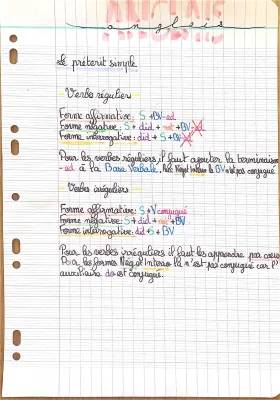 ANGLAIS
anglais
Le préterit simple
Verbe régulier
Forme affirmative: S + BV-ed
Forme négative: S + did + not + BV-ed
Forme interrogative: did + S + BV-ed
Pour les verbes réguliers il faut ajouter la terminaison
-ed à la Base Verbale, Mais Négat Interro la BV n'est pas conjugué
Verbe irrégulier
Forme affirmative: S + V conjugué
Forme négative: S + did + not + BV
Forme interrogative: did + S + BV
Pour les verbes irréguliers il faut les apprendre par coeur
Pour les formes Neg et Interro là n'est pas conjugué car l'
auxiliaire do est conjugué.